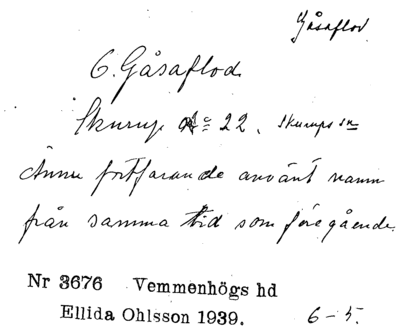 Gåsaflod.
6. Gåsaflod.
Skurup No 22. Skurups sn
Ännu fortfarande använt namn
från samma tid som föregående.
Nr 3676 Vemmenhögs hd
Ellida Ohlsson 1939. 6-5.